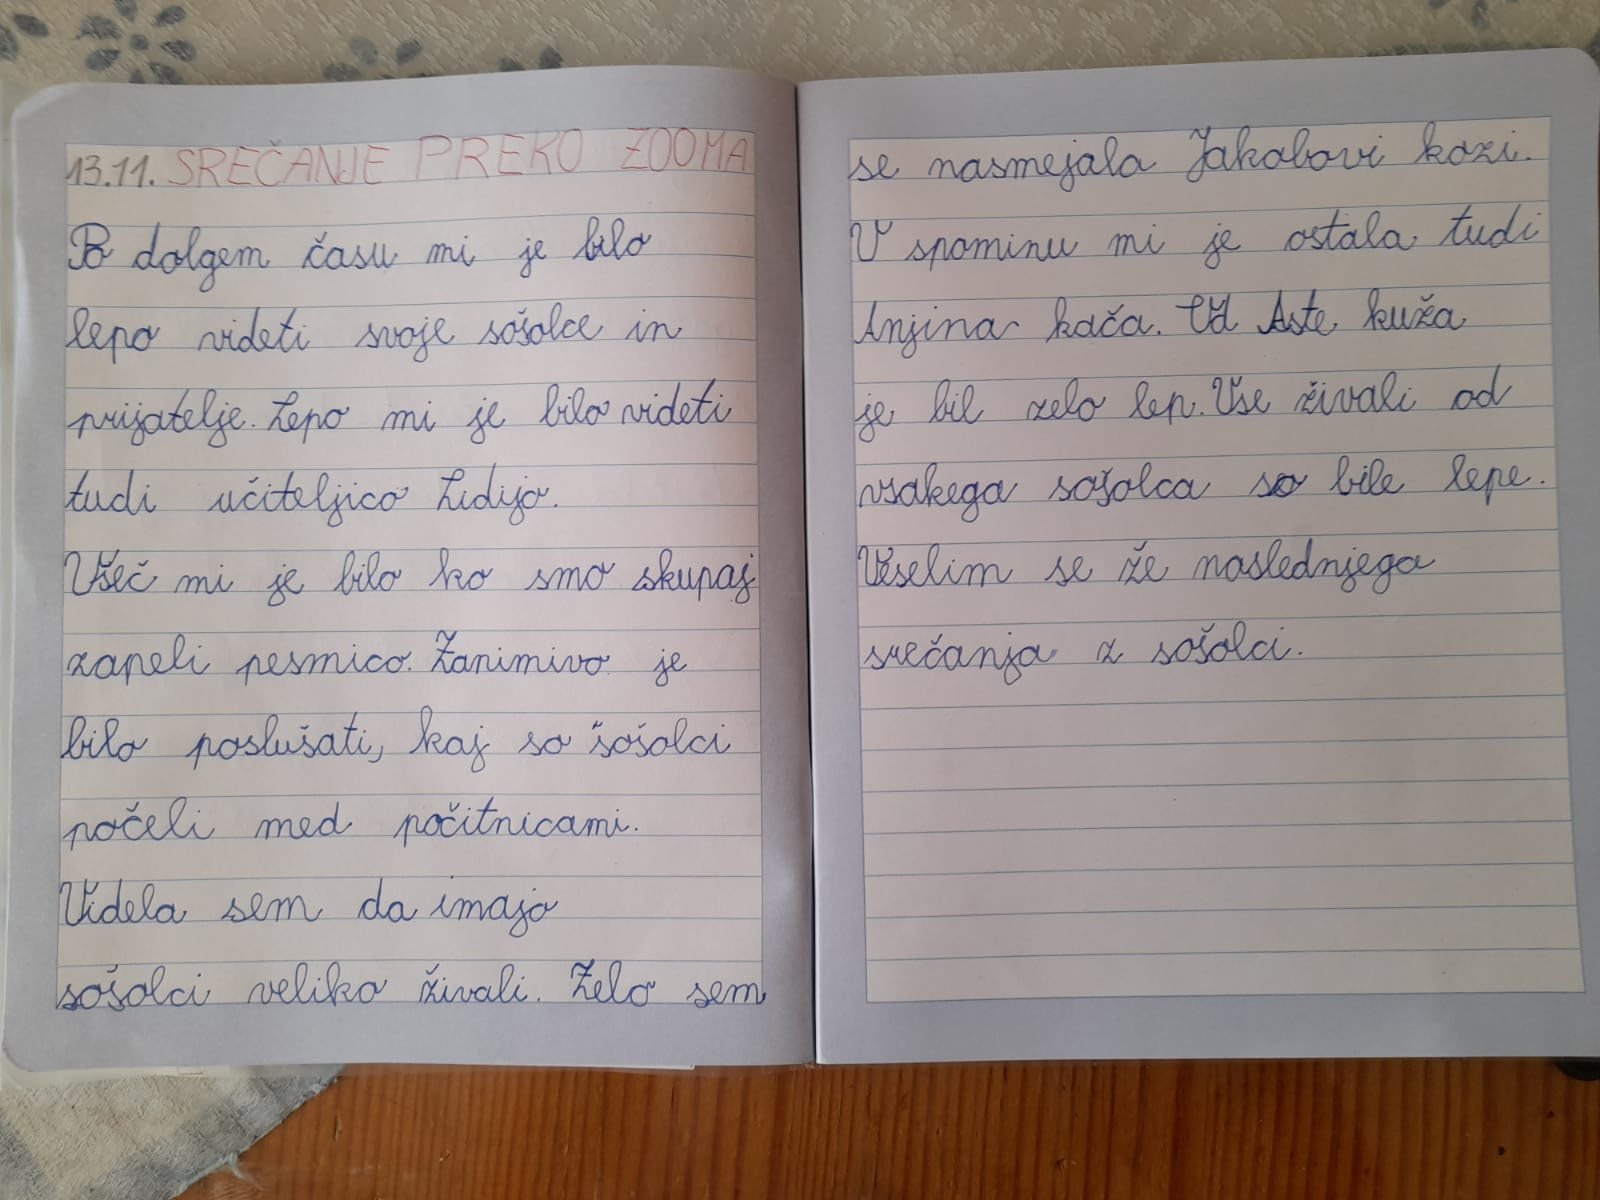 13.11. SREČANJE PREKO ZOOMA
Po dolgem času mi je bilo
lepo videti svoje sošolce in
prijatelje. Lepo mi je bilo videti
tudi učiteljico Lidijo.
Všeč mi je bilo ko smo skupaj
zapeli pesmico. Zanimivo je
bilo poslušati, kaj so šošolci
počeli med počitnicami.
Videla sem da imajo
sošolci veliko živali. Zelo sem
se nasmejala Jakobovi kozi.
V spominu mi je ostala tudi
Anjina kača. Od Aste kuža
je bil zelo lep. Vse živali od
vsakega sošolca so bile lepe.
Veselim se že naslednjega
srečanja z sošolci.